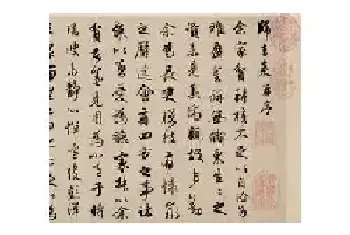 歸去來并序
余家貧耕植不足以自給幼
稚盈室缾無儲粟生生所
資未見其術親故多勸
余為長吏脫然有懷求
之靡途會有四方之事諸
侯以惠愛為德家叔以余
貧苦遂見用為小邑于時
風波未靜心憚遠役彭澤